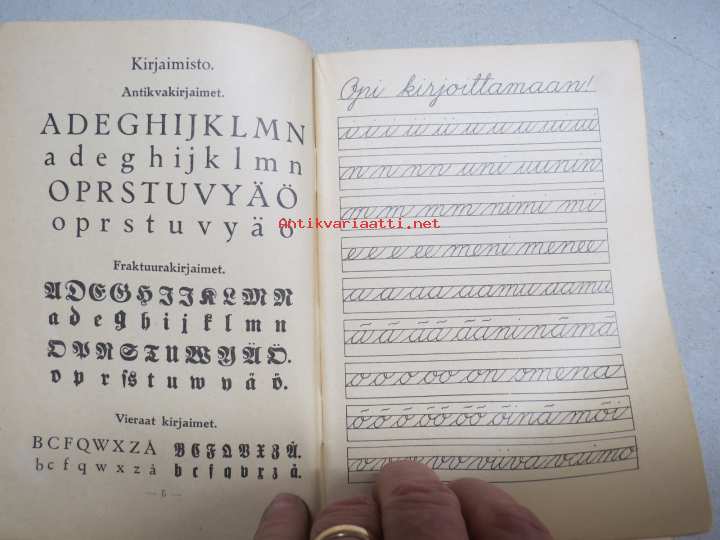 Kirjaimisto.
Antikvakirjaimet.
ADEGHIJKLMN
a d e g h i j k l m n
OPRSTUVYÄÖ
o p r s t u v y ä ö
Fraktuurakirjaimet.
A D E G H I J K L M N
a d e g h i j k l m n
O P R S T U W Y Ä Ö.
o p r ſs t u w y ä ö.
Vieraat kirjaimet.
B C F Q W X Z Å B C F Q V X Z Å.
b c f q w x z å b c f q v x z å.
— 6 —
Opi kirjoittamaan!
n n n n uni uunin
m m m m nimi mi
e e e ee meni menee
a a aa aamu aamu
ä ä ää ääni nämä
o o o oo on omena
ö ö ö öö öö öinä möi
viiva vaimo
Antikvariaatti.net